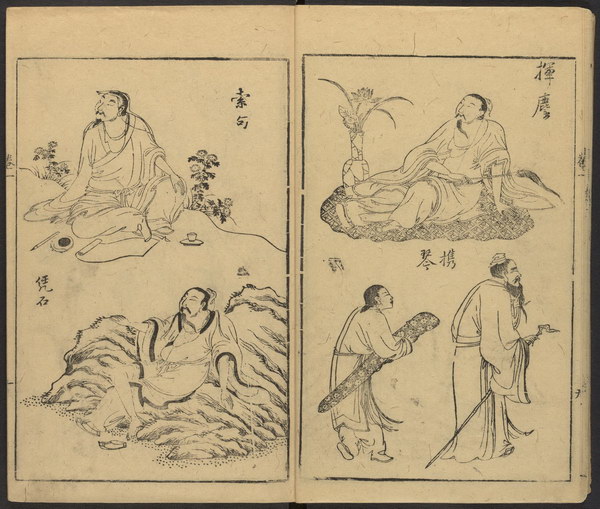 揮麈
携琴
索句
凭石